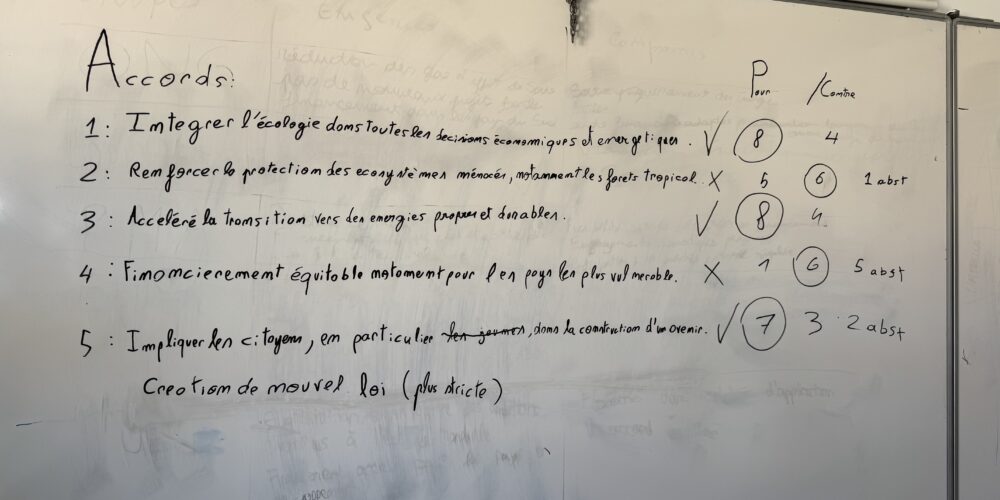 Accords:
Pour /Contre
1: Integrer l'écologie dans toutes les decisions économiques et energetiques. ✓ 8 4
2: Renforcer la protection des ecosystèmes menacés, notamment les forets tropical. X 5 6 1 abst
3: Accéléré la transition vers des energies propres et durables. ✓ 8 4
4: Financierement équitable notament pour les pays les plus vulnerable. X 1 6 5 abst
5: Impliquer les citoyens, en particulier les jeunes, dans la construction d'un avenir. ✓ 7 3 2 abst
Creation de nouvel loi (plus stricte)